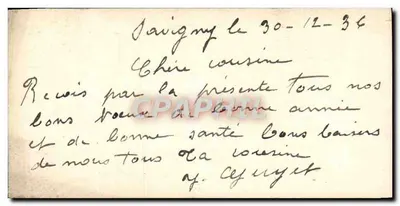 Savigny le 30-12-36
Chère cousine
Reçois par la présente tous nos
bons voeux de bonne année
et de bonne santé bons baisers
de nous tous Ta cousine